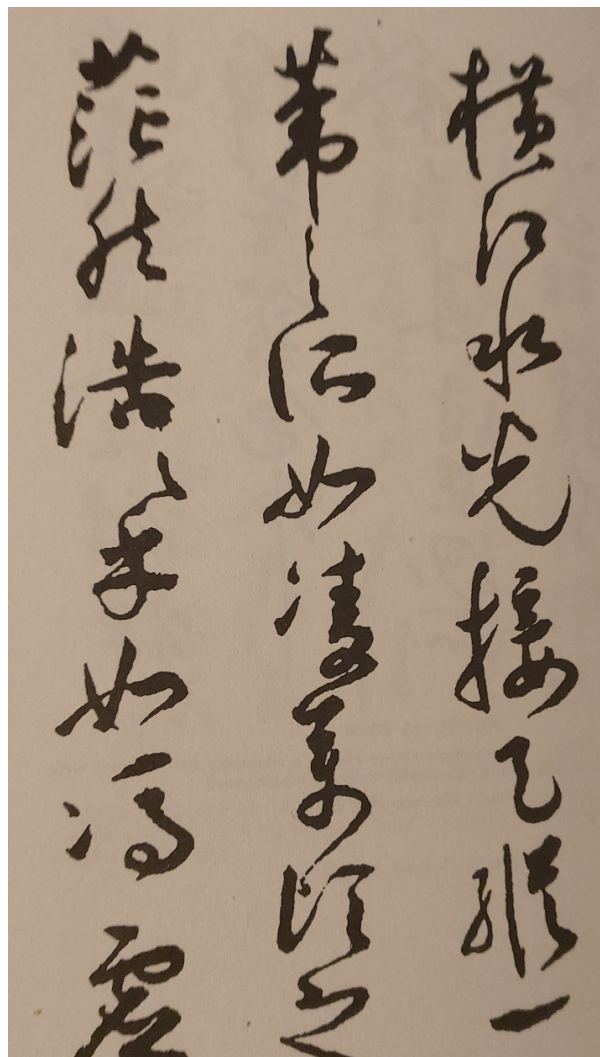 橫江水光接天縱一
葦之所如凌萬頃之
茫然浩〻乎如馮虛